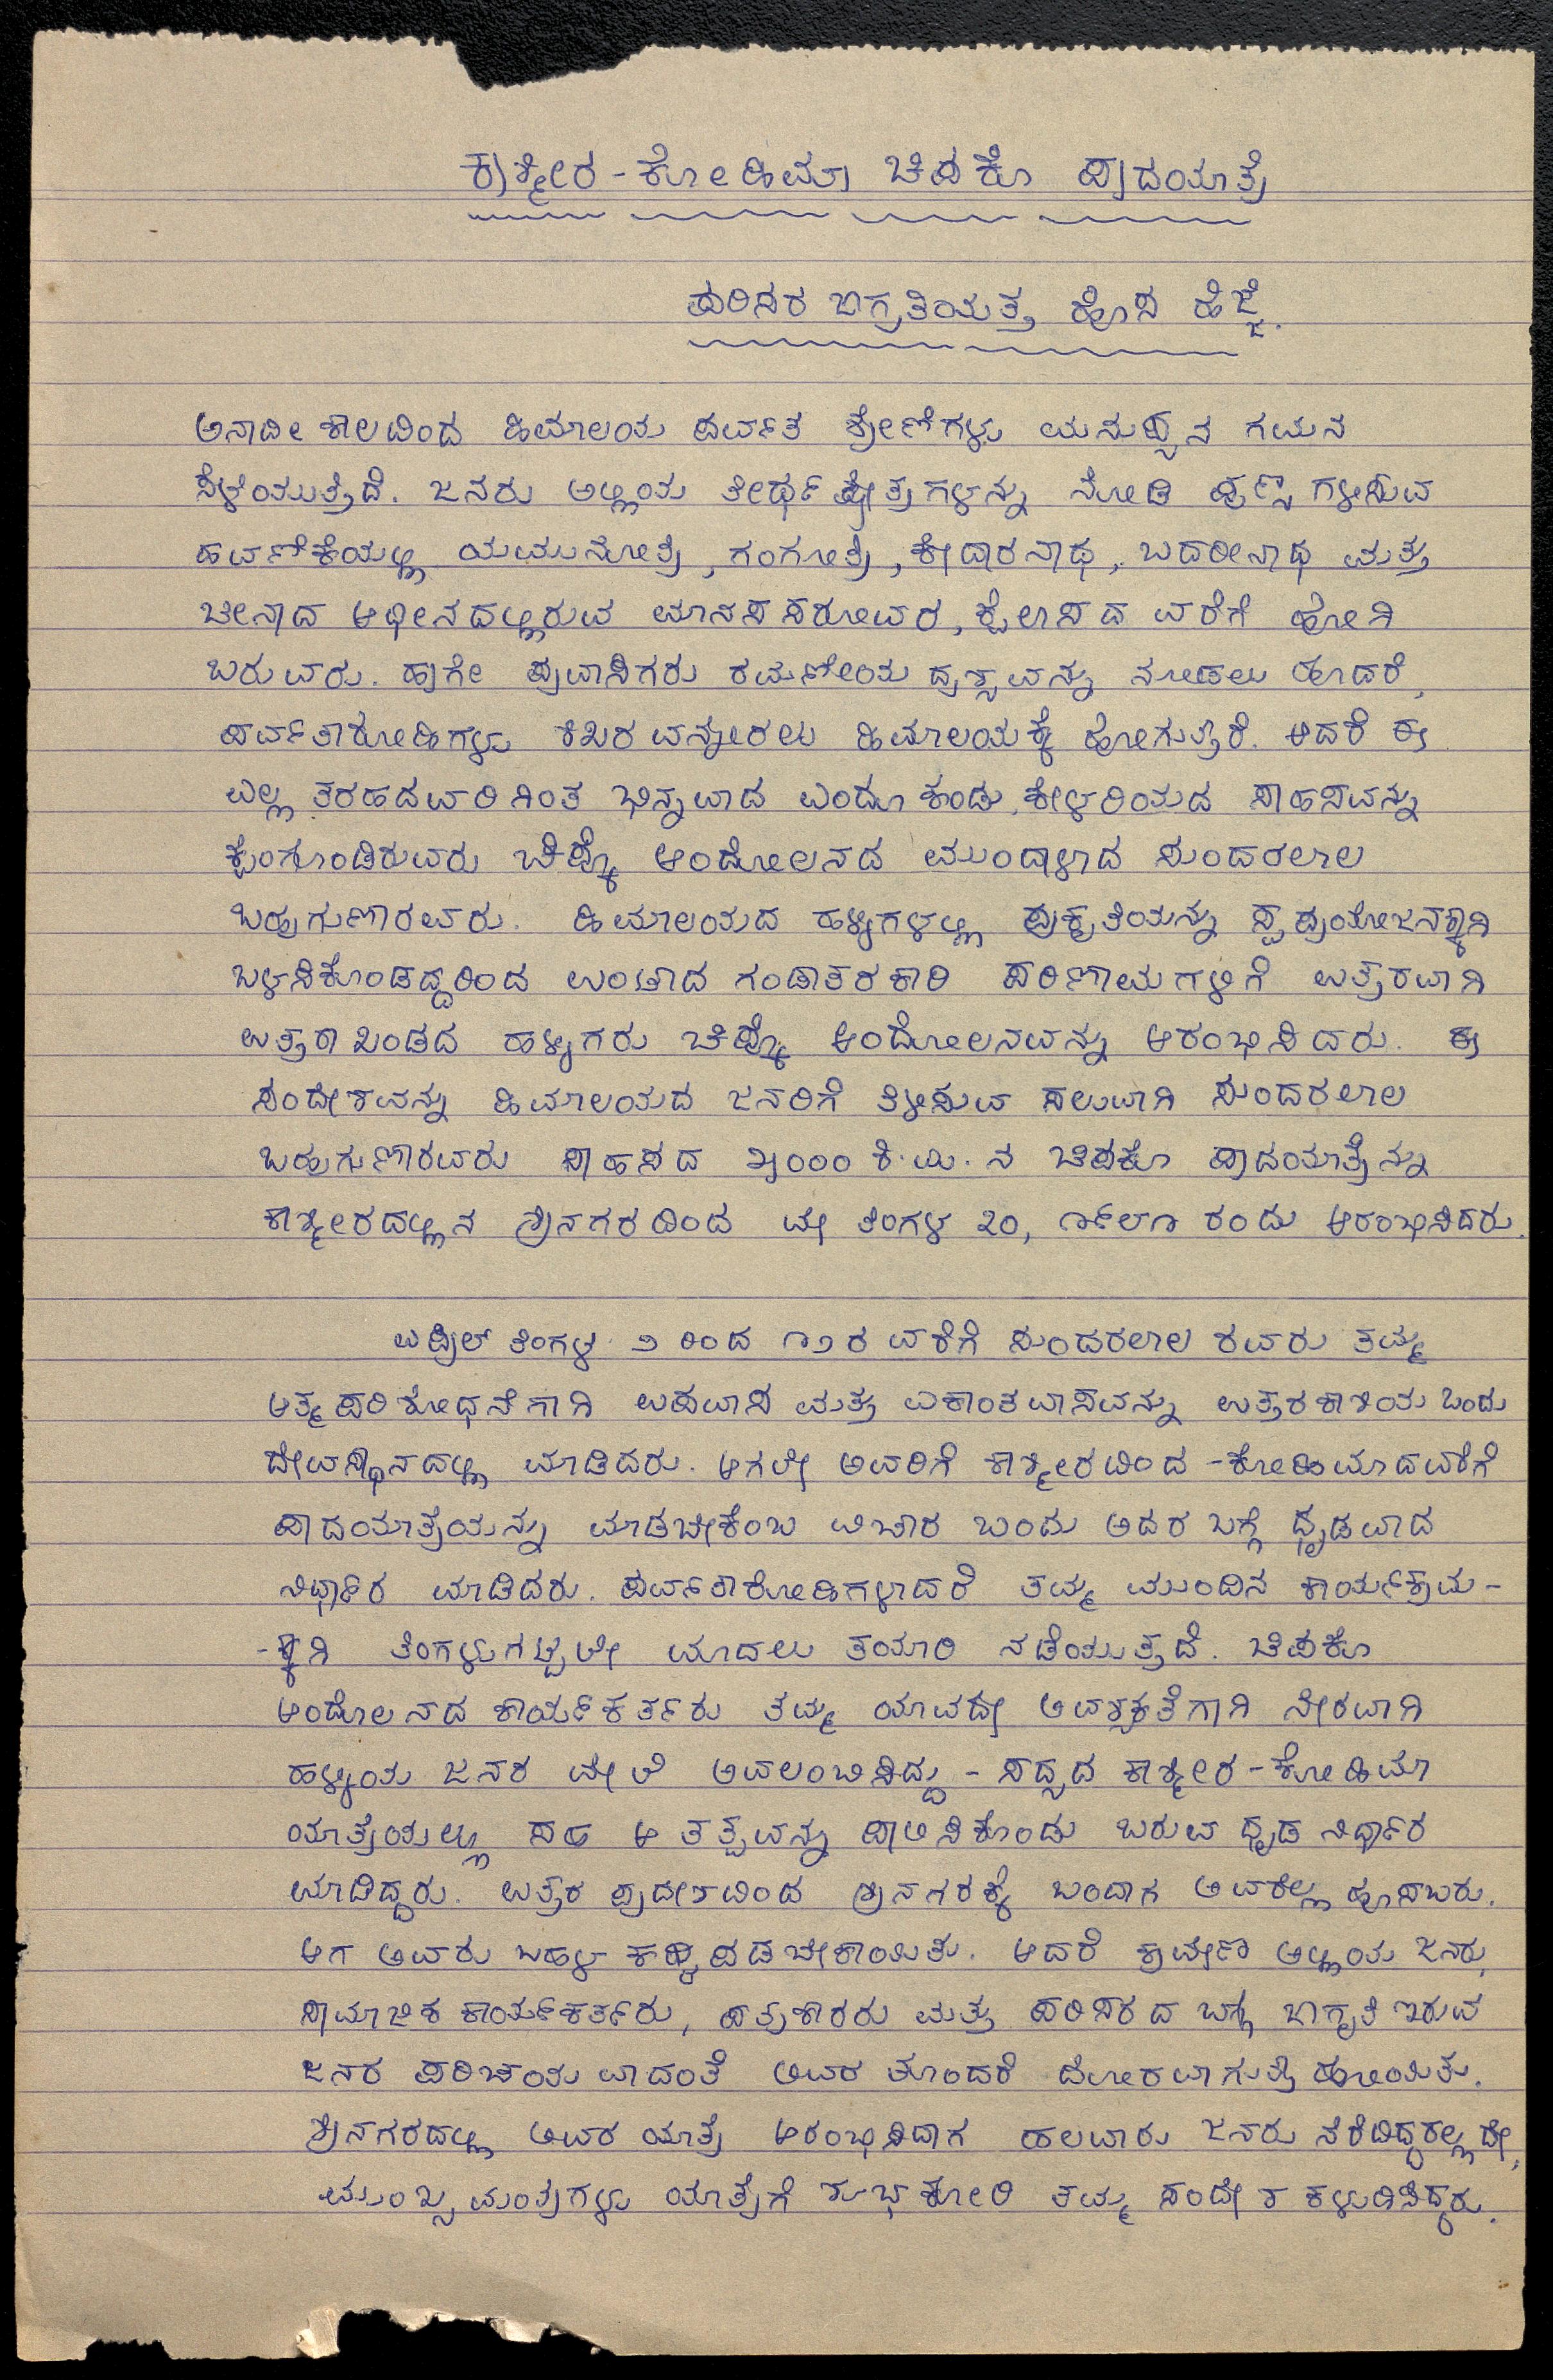 ಕಾಶ್ಮೀರ - ಕೋಹಿಮಾ ಚಿಪಕೊ ಪಾದಯಾತ್ರೆ
ಪರಿಸರ ಜಾಗ್ರತಿಯತ್ತ ಹೊಸ ಹೆಜ್ಜೆ.
ಅನಾದೀ ಕಾಲದಿಂದ ಹಿಮಾಲಯ ಪರ್ವತ ಶ್ರೇಣಿಗಳು ಮನುಷ್ಯನ ಗಮನ
ಸೆಳೆಯುತ್ತಿದೆ. ಜನರು ಅಲ್ಲಿಯ ತೀರ್ಥ ಕ್ಷೇತ್ರಗಳನ್ನು ನೋಡಿ ಪುಣ್ಯ ಗಳೀಸುವ
ಹವಣಿಕೆಯಲ್ಲಿ ಯಮುನೋತ್ರಿ, ಗಂಗೋತ್ರಿ, ಕೇದಾರನಾಥ, ಬದರೀನಾಥ ಮತ್ತು
ಚೀನಾದ ಆಧೀನದಲ್ಲಿರುವ ಮಾನಸ ಸರೋವರ, ಕೈಲಾಸದ ವರೆಗೆ ಹೋಗಿ
ಬರುವರು. ಹಾಗೇ ಪ್ರವಾಸಿಗರು ರಮಣೀಯ ದ್ರಶ್ಯವನ್ನು ನೋಡಲು ಹೋದರೆ,
ಪರ್ವತಾರೋಹಿಗಳು ಶಿಖರವನ್ನೇರಲು ಹಿಮಾಲಯಕ್ಕೆ ಹೋಗುತ್ತಾರೆ. ಆದರೆ ಈ
ಎಲ್ಲ ತರಹದವರಿಗಿಂತ ಭಿನ್ನವಾದ ಎಂದೂ ಕಂಡು ಕೇಳರಿಯದ ಸಾಹಸವನ್ನು
ಕೈಂಗೊಂಡಿರುವರು ಚಿಪ್ಕೊ ಆಂದೋಲನದ ಮುಂದಾಳಾದ ಸುಂದರಲಾಲ
ಬಹುಗುಣಾರವರು. ಹಿಮಾಲಯದ ಹಳ್ಳಿಗಳಲ್ಲಿ ಪ್ರಕೃತಿಯನ್ನು ಸ್ವಪ್ರಯೋಜನಕ್ಕಾಗಿ
ಬಳಸಿಕೊಂಡದ್ದರಿಂದ ಉಂಟಾದ ಗಂಡಾತರಕಾರಿ ಪರಿಣಾಮಗಳಿಗೆ ಉತ್ತರವಾಗಿ
ಉತ್ತರಾಖಂಡದ ಹಳ್ಳಿಗರು ಚಿಪ್ಕೊ ಆಂದೋಲನವನ್ನು ಆರಂಭಿಸಿದರು. ಈ
ಸಂದೇಶವನ್ನು ಹಿಮಾಲಯದ ಜನರಿಗೆ ತಿಳೀಸುವ ಸಲುವಾಗಿ ಸುಂದರಲಾಲ
ಬಹುಗುಣಾರವರು ಸಾಹಸದ ೫೦೦೦ ಕಿ.ಮಿ.ನ ಚಿಪಕೊ ಪಾದಯಾತ್ರೆನ್ನು
ಕಾಶ್ಮೀರದಲ್ಲಿನ ಶ್ರೀನಗರದಿಂದ ಮೇ ತಿಂಗಳ ೩೦, ೧೯೮೧ ರಂದು ಆರಂಭಿಸಿದರು.
ಎಪ್ರಿಲ್ ತಿಂಗಳ ೨ ರಿಂದ ೧೨ರ ವರೆಗೆ ಸುಂದರಲಾಲ ರವರು ತಮ್ಮ
ಆತ್ಮಪರಿಶೋಧನೆಗಾಗಿ ಉಪವಾಸ ಮತ್ತು ಏಕಾಂತವಾಸವನ್ನು ಉತ್ತರಕಾಶಿಯ ಒಂದು
ದೇವಸ್ಥಾನದಲ್ಲಿ ಮಾಡಿದರು. ಆಗಲೇ ಅವರಿಗೆ ಕಾಶ್ಮೀರದಿಂದ -ಕೋಹಿಮಾದವರೆಗೆ
ಪಾದಯಾತ್ರೆಯನ್ನು ಮಾಡಬೇಕೆಂಬ ವಿಚಾರ ಬಂದು ಅದರ ಬಗ್ಗೆ ಧೃಡವಾದ
ನಿರ್ಧಾರ ಮಾಡಿದರು. ಪರ್ವತಾರೋಹಿಗಳಾದರೆ ತಮ್ಮ ಮುಂದಿನ ಕಾರ್ಯಕ್ರಮ-
-ಕ್ಕಾಗಿ ತಿಂಗಳುಗಟ್ಟಲೇ ಮೊದಲು ತಯಾರಿ ನಡೆಯುತ್ತದೆ. ಚಿಪಕೊ
ಆಂದೋಲನದ ಕಾರ್ಯಕರ್ತರು ತಮ್ಮ ಯಾವದೇ ಅವಶ್ಯಕತೆಗಾಗಿ ನೇರವಾಗಿ
ಹಳ್ಳಿಯ ಜನರ ಮೇಲೆ ಅವಲಂಬಿಸಿದ್ದು - ಸಧ್ಯದ ಕಾಶ್ಮೀರ - ಕೋಹಿಮಾ
ಯಾತ್ರೆಯಲ್ಲೂ ಸಹ ಆ ತತ್ವವನ್ನು ಪಾಲಿಸಿಕೊಂಡು ಬರುವ ಧೃಡ ನಿರ್ಧಾರ
ಮಾಡಿದ್ದರು. ಉತ್ತರ ಪ್ರದೇಶದಿಂದ ಶ್ರೀನಗರಕ್ಕೆ ಬಂದಾಗ ಅವರೆಲ್ಲ ಹೊಸಬರು.
ಆಗ ಅವರು ಬಹಳ ಕಷ್ಟಪಡಬೇಕಾಯಿತು. ಆದರೆ ಕ್ರಮೇಣ ಅಲ್ಲಿಯ ಜನರು,
ಸಾಮಾಜಿಕ ಕಾರ್ಯಕರ್ತರು, ಪತ್ರಕಾರರು ಮತ್ತು ಪರಿಸರದ ಬಗ್ಗೆ ಜಾಗೃತಿ ಇರುವ
ಜನರ ಪರಿಚಯವಾದಂತೆ ಅವರ ತೊಂದರೆ ದೂರವಾಗುತ್ತಾ ಹೋಯಿತು.
ಶ್ರೀನಗರದಲ್ಲಿ ಅವರ ಯಾತ್ರೆ ಆರಂಭಿಸಿದಾಗ ಹಲವಾರು ಜನರು ನೆರೆದಿದ್ದರಲ್ಲದೇ,
ಮುಂಖ್ಯ ಮಂತ್ರಿಗಳು ಯಾತ್ರೆಗೆ ಶುಭಕೋರಿ ತಮ್ಮ ಸಂದೇಶ ಕಳುಹಿಸಿದ್ದರು.